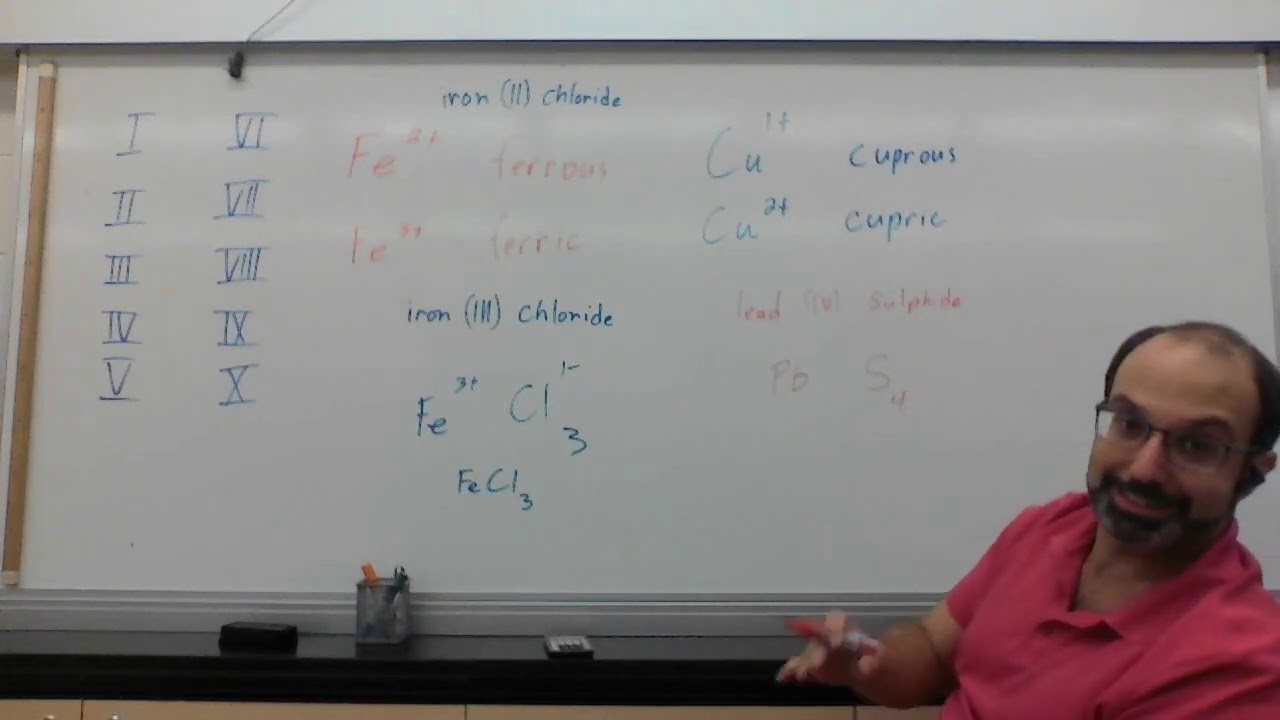 I VI
II VII
III VIII
IV IX
V X
iron (II) chloride
Fe 2+ ferrous
Fe 3+ ferric
iron (III) chloride
Fe 3+ Cl 1- 3
FeCl3
Cu 1+ cuprous
Cu 2+ cupric
lead (IV) sulphide
Pb S4